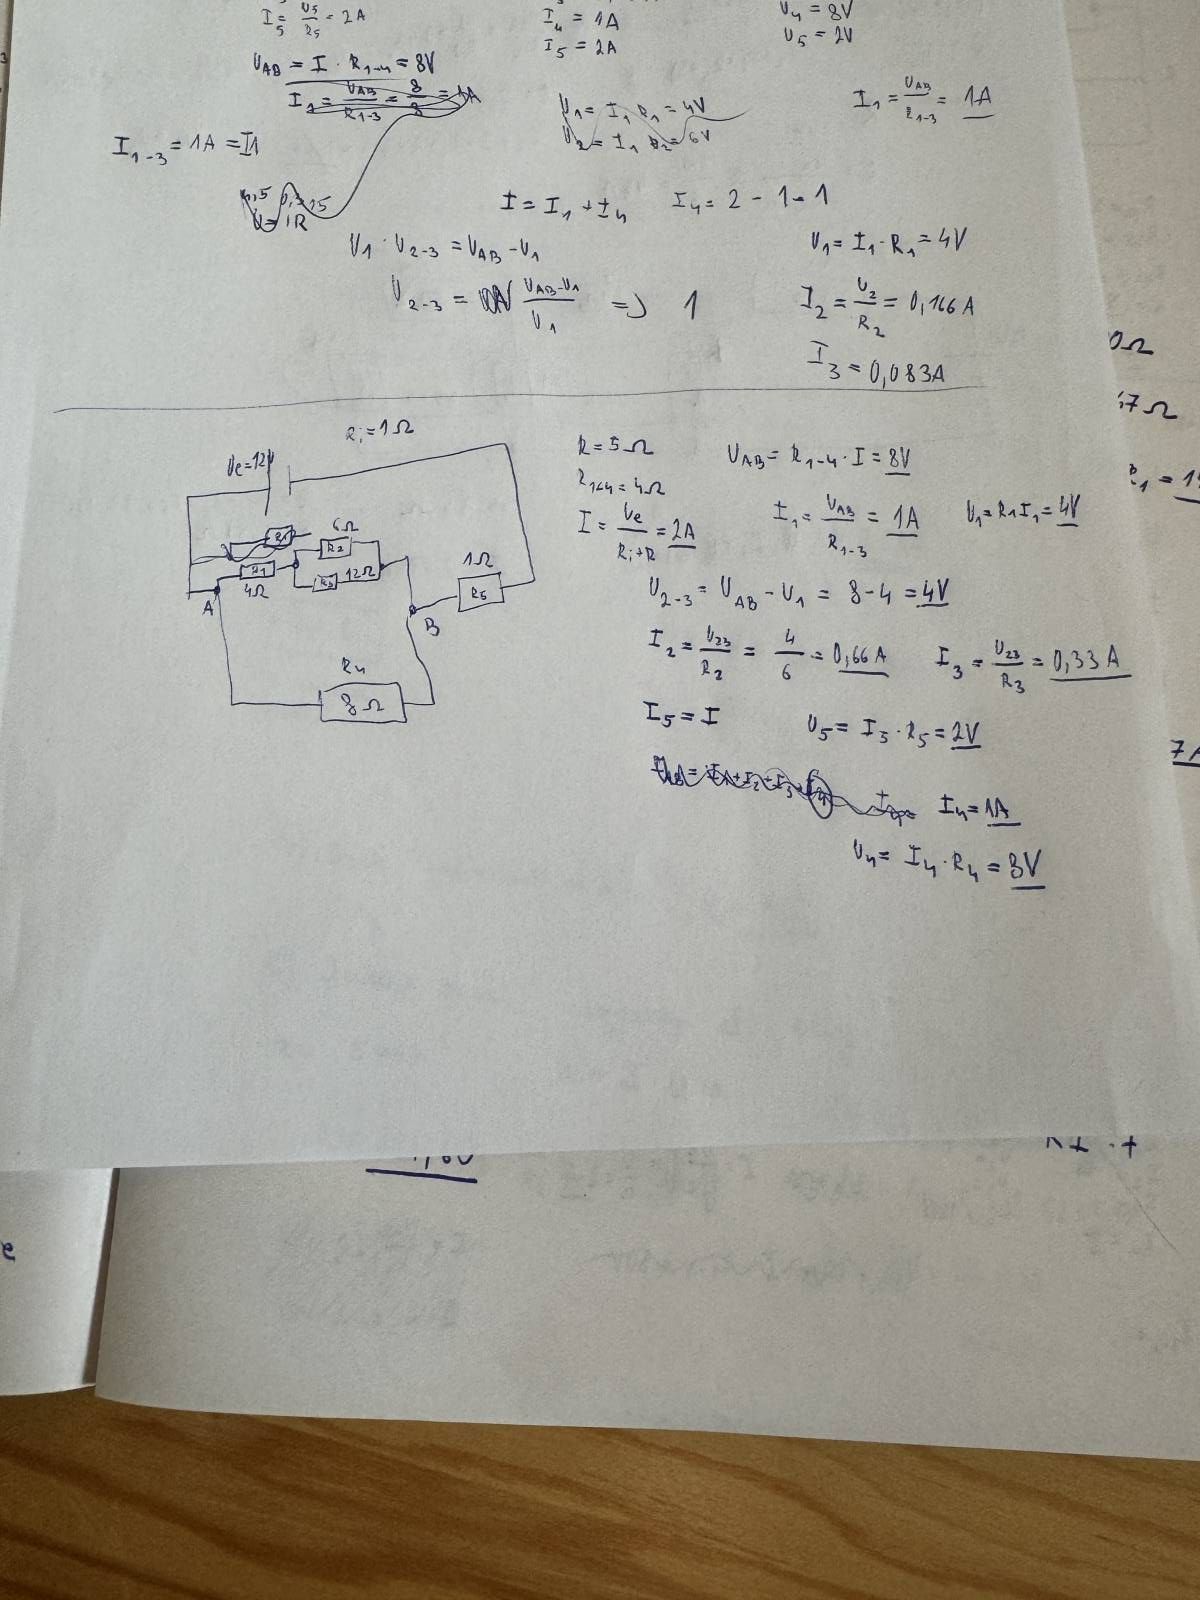 I5 = U5/R5 = 2A
I4 = 1A
I5 = 2A
U4 = 8V
U5 = 2V
UAB = I · R1-4 = 8V
I1 = UAB/R1-3 = 8/8 = 1A
U1 = I1 R1 = 4V
U2 = I1 R2 = 6V
I1 = UAB/R1-3 = 1A
I1-3 = 1A = I1
I = I1 + I4
I4 = 2 - 1 = 1
U1 · U2-3 = UAB - U1
U1 = I1 · R1 = 4V
U2-3 = UAB-U1/U1 => 1
I2 = U2/R2 = 0,166A
I3 = 0,083A
Ri = 1Ω
Ue = 12V
R1
6Ω
R2
R1
4Ω
R3
12Ω
1Ω
R5
A
B
R4
8Ω
R = 5Ω
R1-4 = 4Ω
I = Ue/Ri+R = 2A
UAB = R1-4 · I = 8V
I1 = UAB/R1-3 = 1A
U1 = R1 I1 = 4V
U2-3 = UAB - U1 = 8 - 4 = 4V
I2 = U23/R2 = 4/6 = 0,66A
I3 = U23/R3 = 0,33A
I5 = I
U5 = I5 · R5 = 2V
I4 = 1A
U4 = I4 · R4 = 8V
0Ω
7Ω
7A